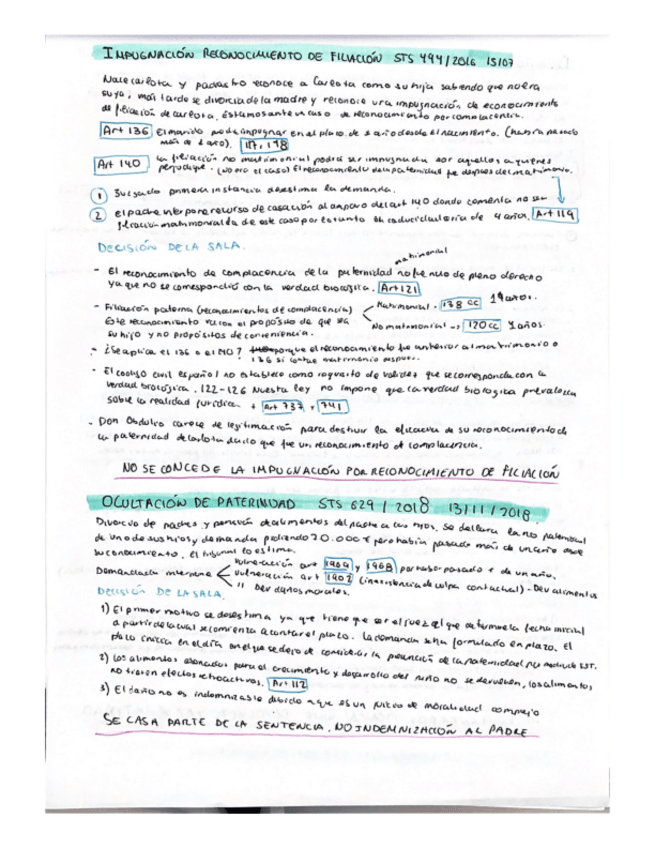 IMPUGNACIÓN RECONOCIMIENTO DE FILIACIÓN STS 494/2016 15/07
Nace carlota y padrastro reconoce a Carlota como su hija sabiendo que no era
suya; más tarde se divorcia de la madre y reconoce una impugnación de reconocimiento
de filiación de carlota. Estamos ante un caso de reconocimiento por complacencia.
Art 136 El marido podrá impugnar en el plazo de 1 año desde el nacimiento. (había pasado
más de 1 año). 117, 118
Art 140 La filiación no matrimonial podrá ser impugnada por aquellos a quienes
perjudique. (no era el caso) El reconocimiento de la paternidad fue después del matrimonio.
1 Juzgado primera instancia desestima la demanda.
2 El padre interpone recurso de casación al amparo del art 140 donde comenta no ser
filiación matrimonial la de este caso por lo tanto la caducidad sería de 4 años. Art 119
DECISIÓN DE LA SALA.
matrimonial
- El reconocimiento de complacencia de la paternidad no es nulo de pleno derecho
ya que no se correspondió con la verdad biológica. Art 121
- Filiación paterna (reconocimientos de complacencia) Matrimonial - 138 CC 1 años.
Este reconocimiento va con el propósito de que sea No matrimonial -> 120 CC 1 años
su hijo y no propósitos de conveniencia.
- ¿Se aplica el 136 o el 140? porque el reconocimiento fue anterior al matrimonio o
136 si contrae matrimonio después.
- El código civil español no establece como requisito de validez que se corresponda con la
verdad biológica. 122-126 Nuestra ley no impone que la verdad biológica prevalezca
sobre la realidad jurídica + Art 737 y 741
- Don Obdulio carece de legitimación para destruir la eficacia de su reconocimiento de
la paternidad de Carlota dado que fue un reconocimiento de complacencia.
NO SE CONCEDE LA IMPUGNACIÓN POR RECONOCIMIENTO DE FILIACIÓN
OCULTACIÓN DE PATERNIDAD STS 629 / 2018 13/11/2018
Divorcio de padres y pensión de alimentos del padre a los hijos. Se declara la no paternidad
de uno de sus hijos y demanda pidiendo 70.000 € pero había pasado más de un año desde
su conocimiento. El tribunal lo estima.
Demandada interpone vulneración art 1964 y 1968 por haber pasado + de un año.
vulneración art 1902 (inexistencia de culpa contractual) - Dev alimentos
" Dev daños morales.
DECISIÓN DE LA SALA.
1) El primer motivo se desestima ya que tiene que ser el juez el que determine la fecha inicial
a partir de la cual se comienza a contar el plazo. La demanda se ha formulado en plazo. El
plazo inicia en el día en el que se dejó de considerar la presunción de la paternidad por medio de SST.
2) Los alimentos abonados para el crecimiento y desarrollo del niño no se devuelven, los alimentos
no tienen efectos retroactivos. Art 112
3) El daño no es indemnizable debido a que es un juicio de moralidad complejo
SE CASA PARTE DE LA SENTENCIA. NO INDEMNIZACIÓN AL PADRE